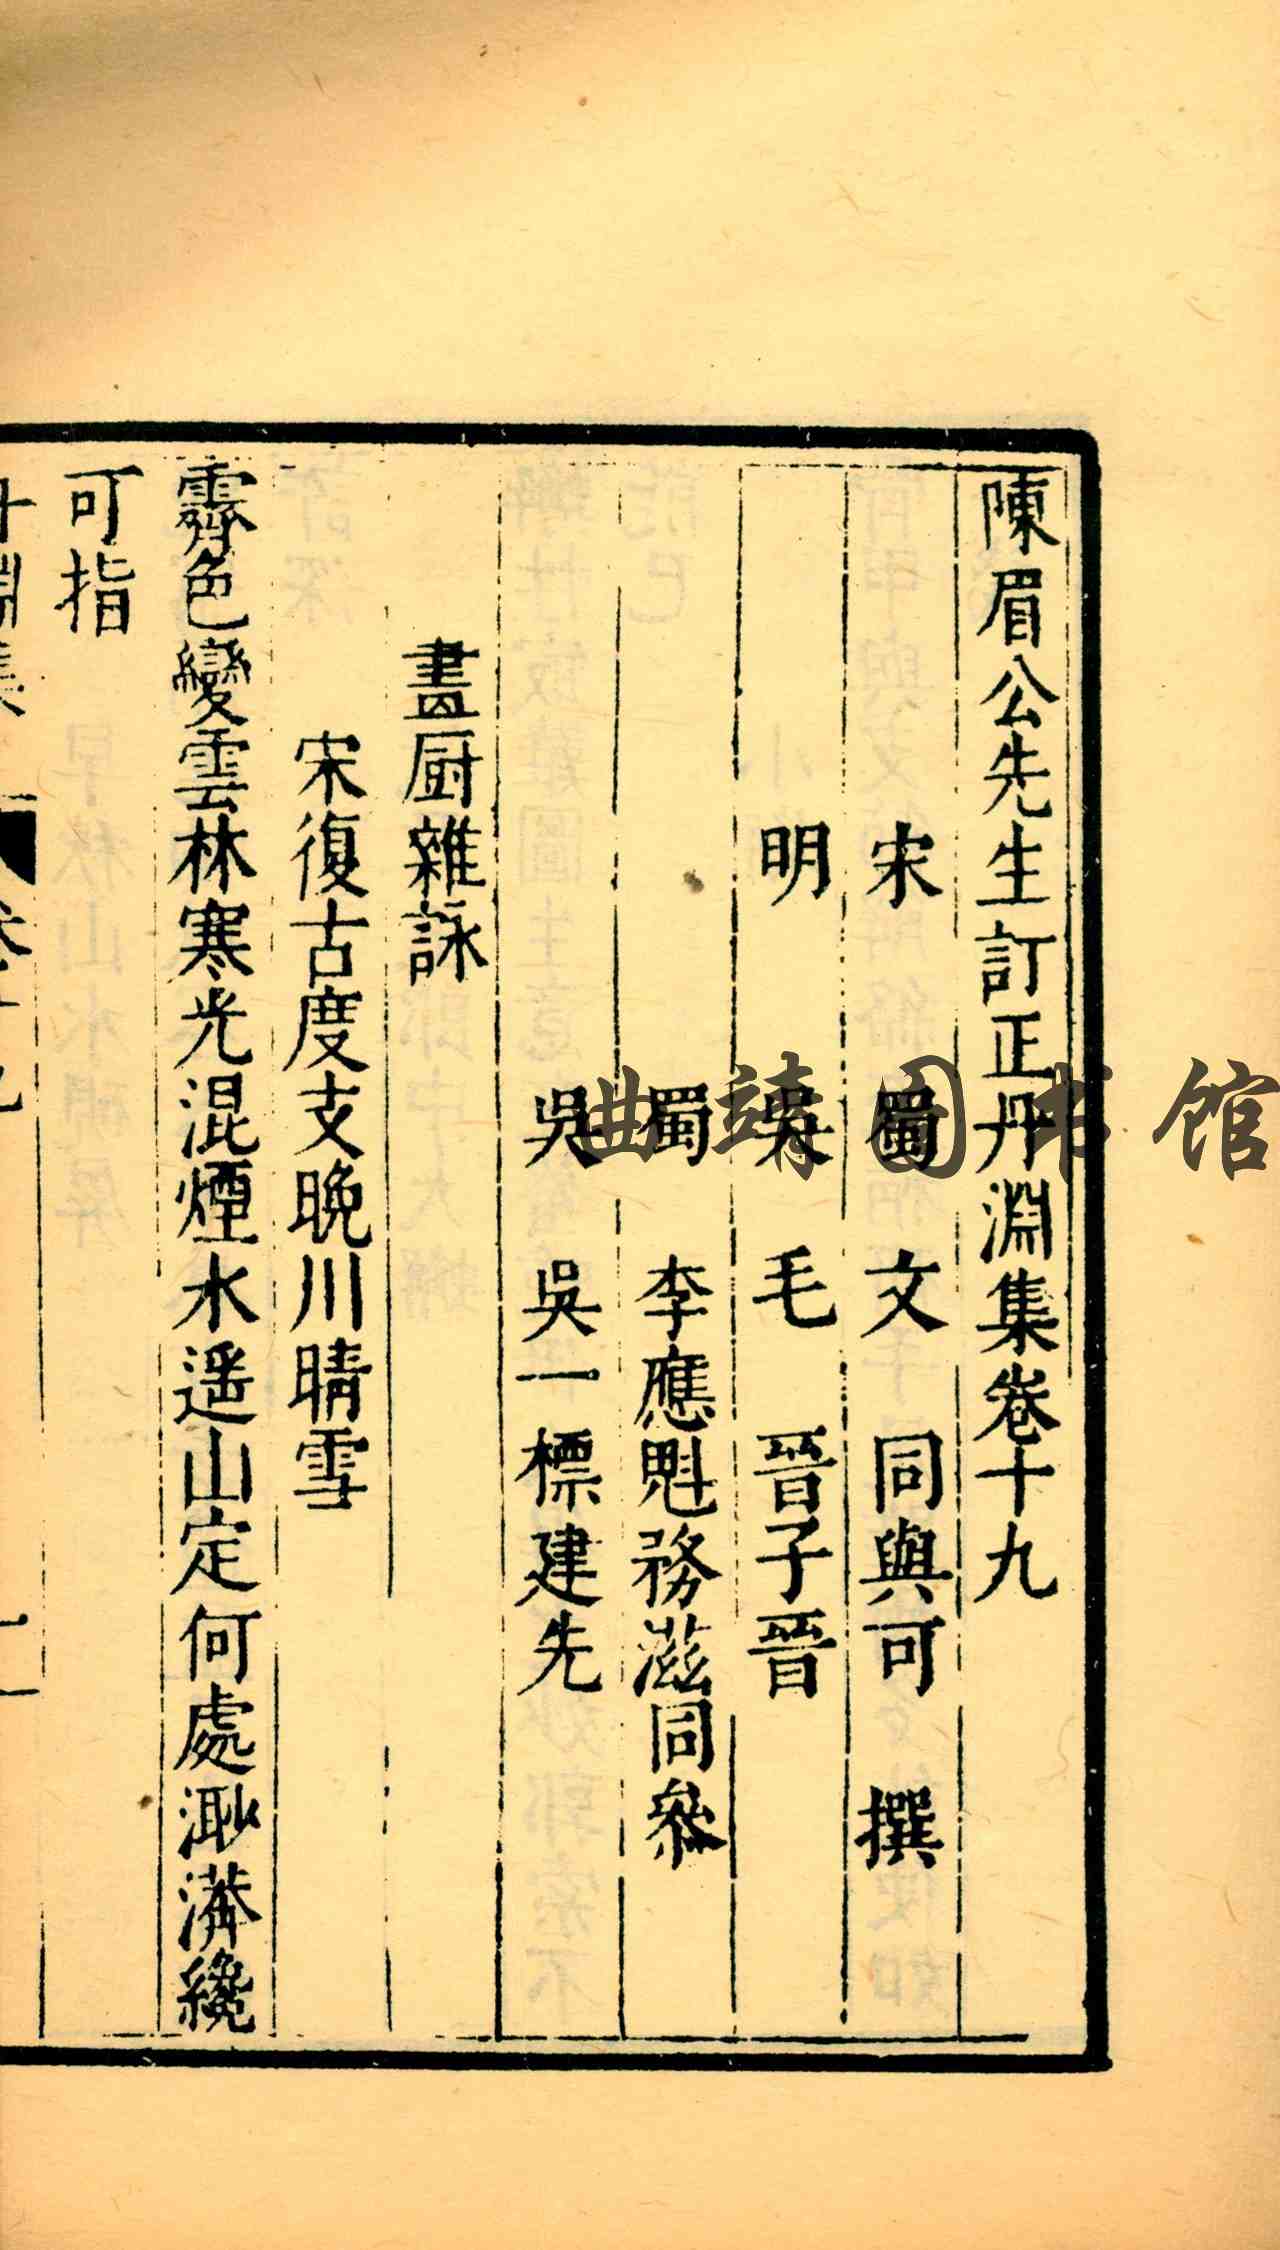 陳眉公先生訂正丹淵集卷十九
宋 蜀 文 同與可 撰
明 吳 毛 晉子晉
蜀 李應魁務滋同參
吳 吳一標建先
畫厨雜詠
宋復古度支晚川晴雪
霽色變雲林寒光混煙水遥山定何處溝纔
可指
曲靖图书馆